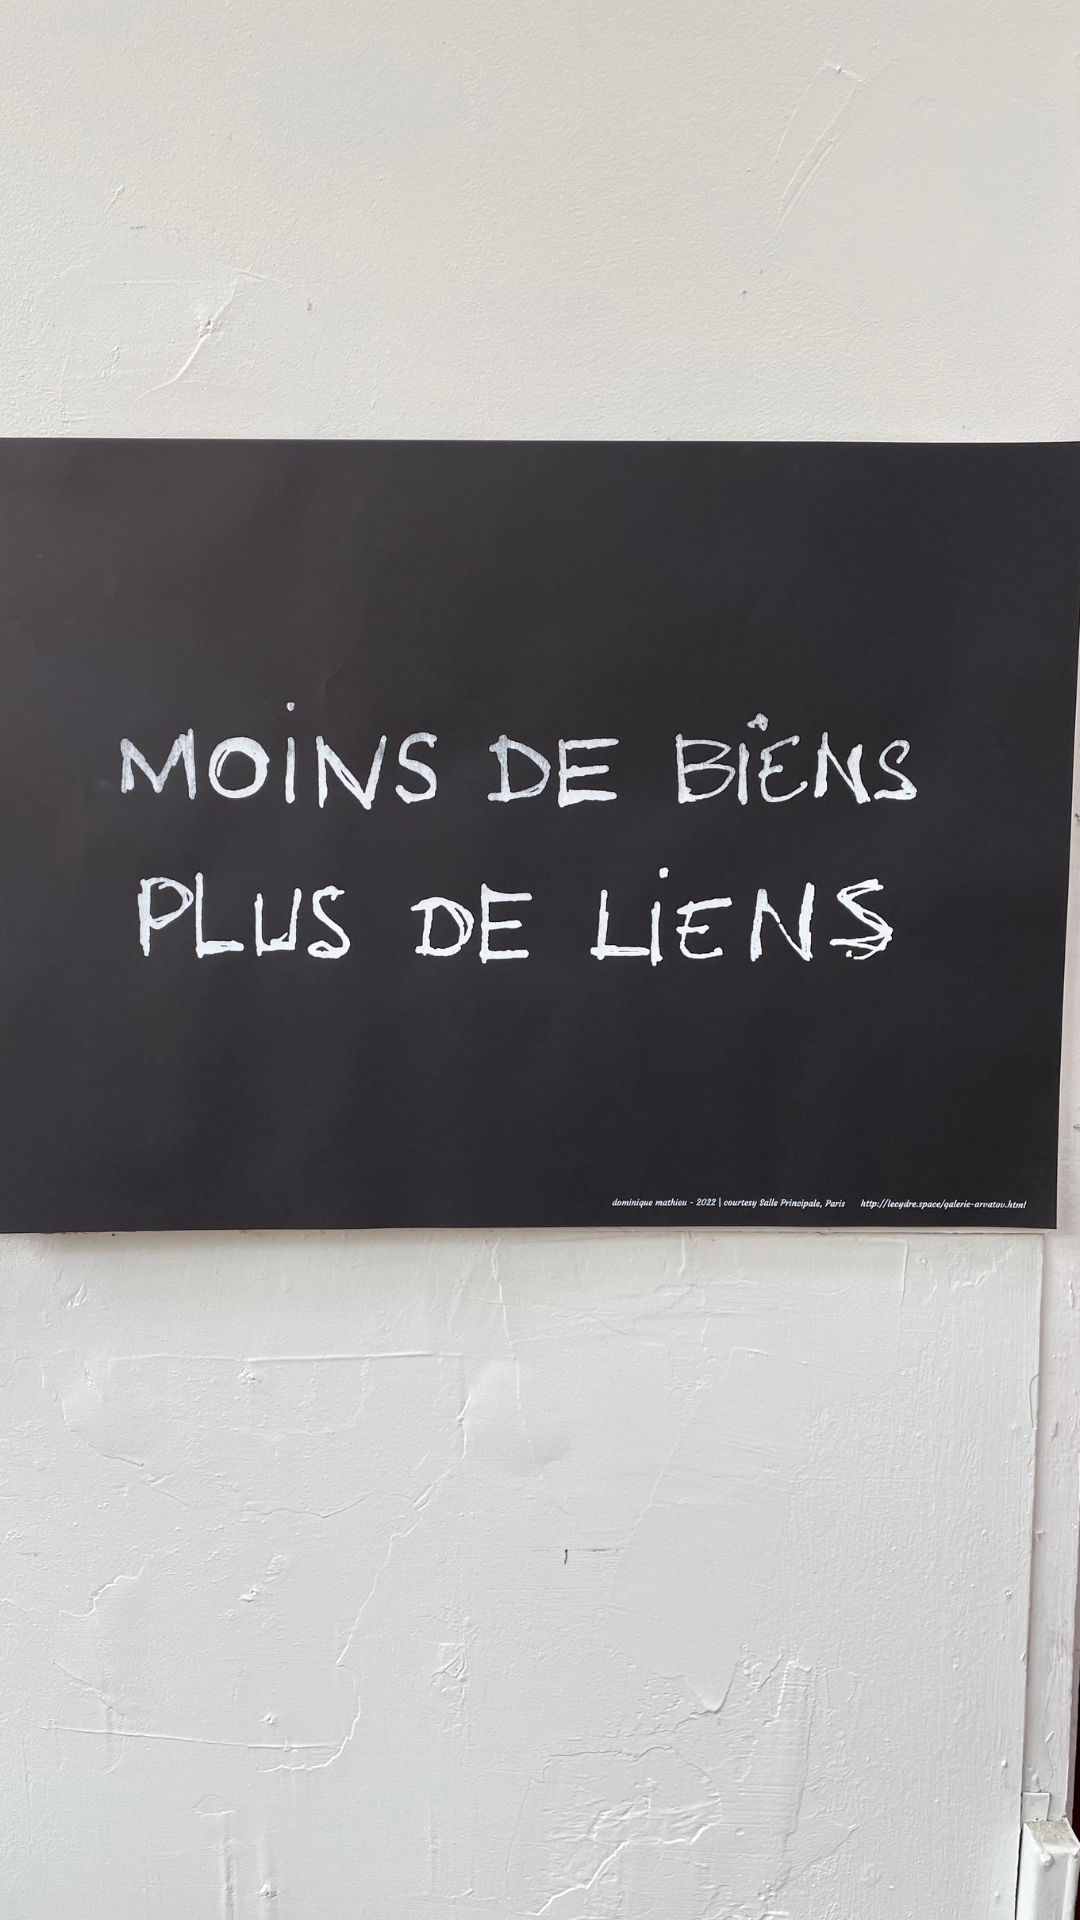 MOiNS DE BiENS
PLUS DE LiENS
dominique mathieu - 2022 | courtesy Salle Principale, Paris http://lecydre.space/galerie-arvatov.html